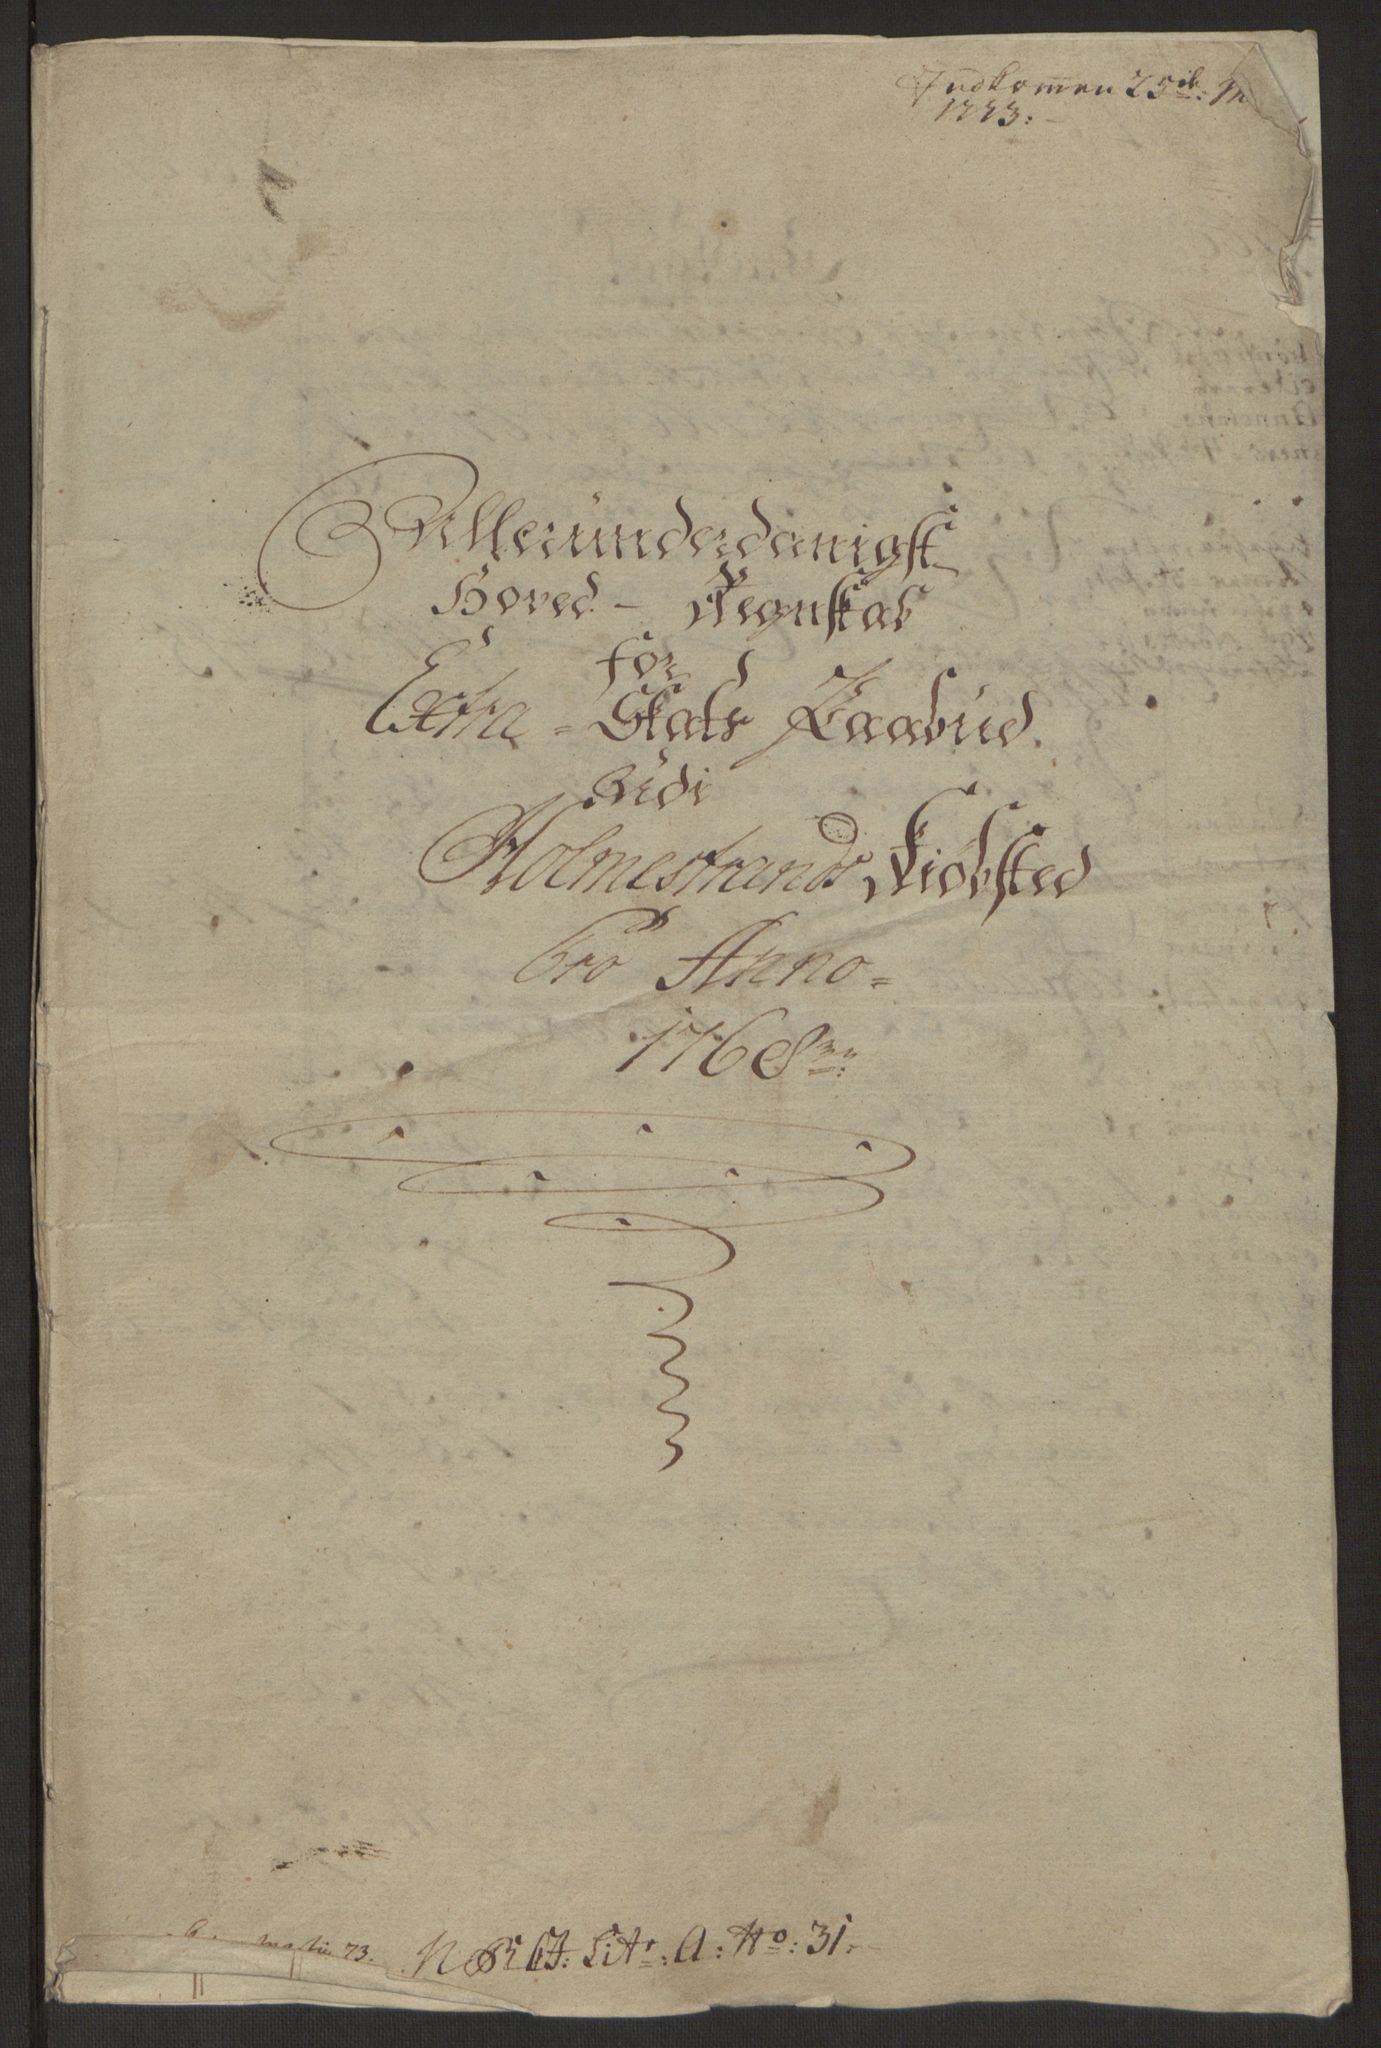 Indkommen 25de M
1773.
Allerunderdanigst
Hoved - Regnskab
for
Extra = Skats Paabud
udi
Holmestrands Kiøbsted
Pro Anno =
1768
73.
Litr: A: No: 31.